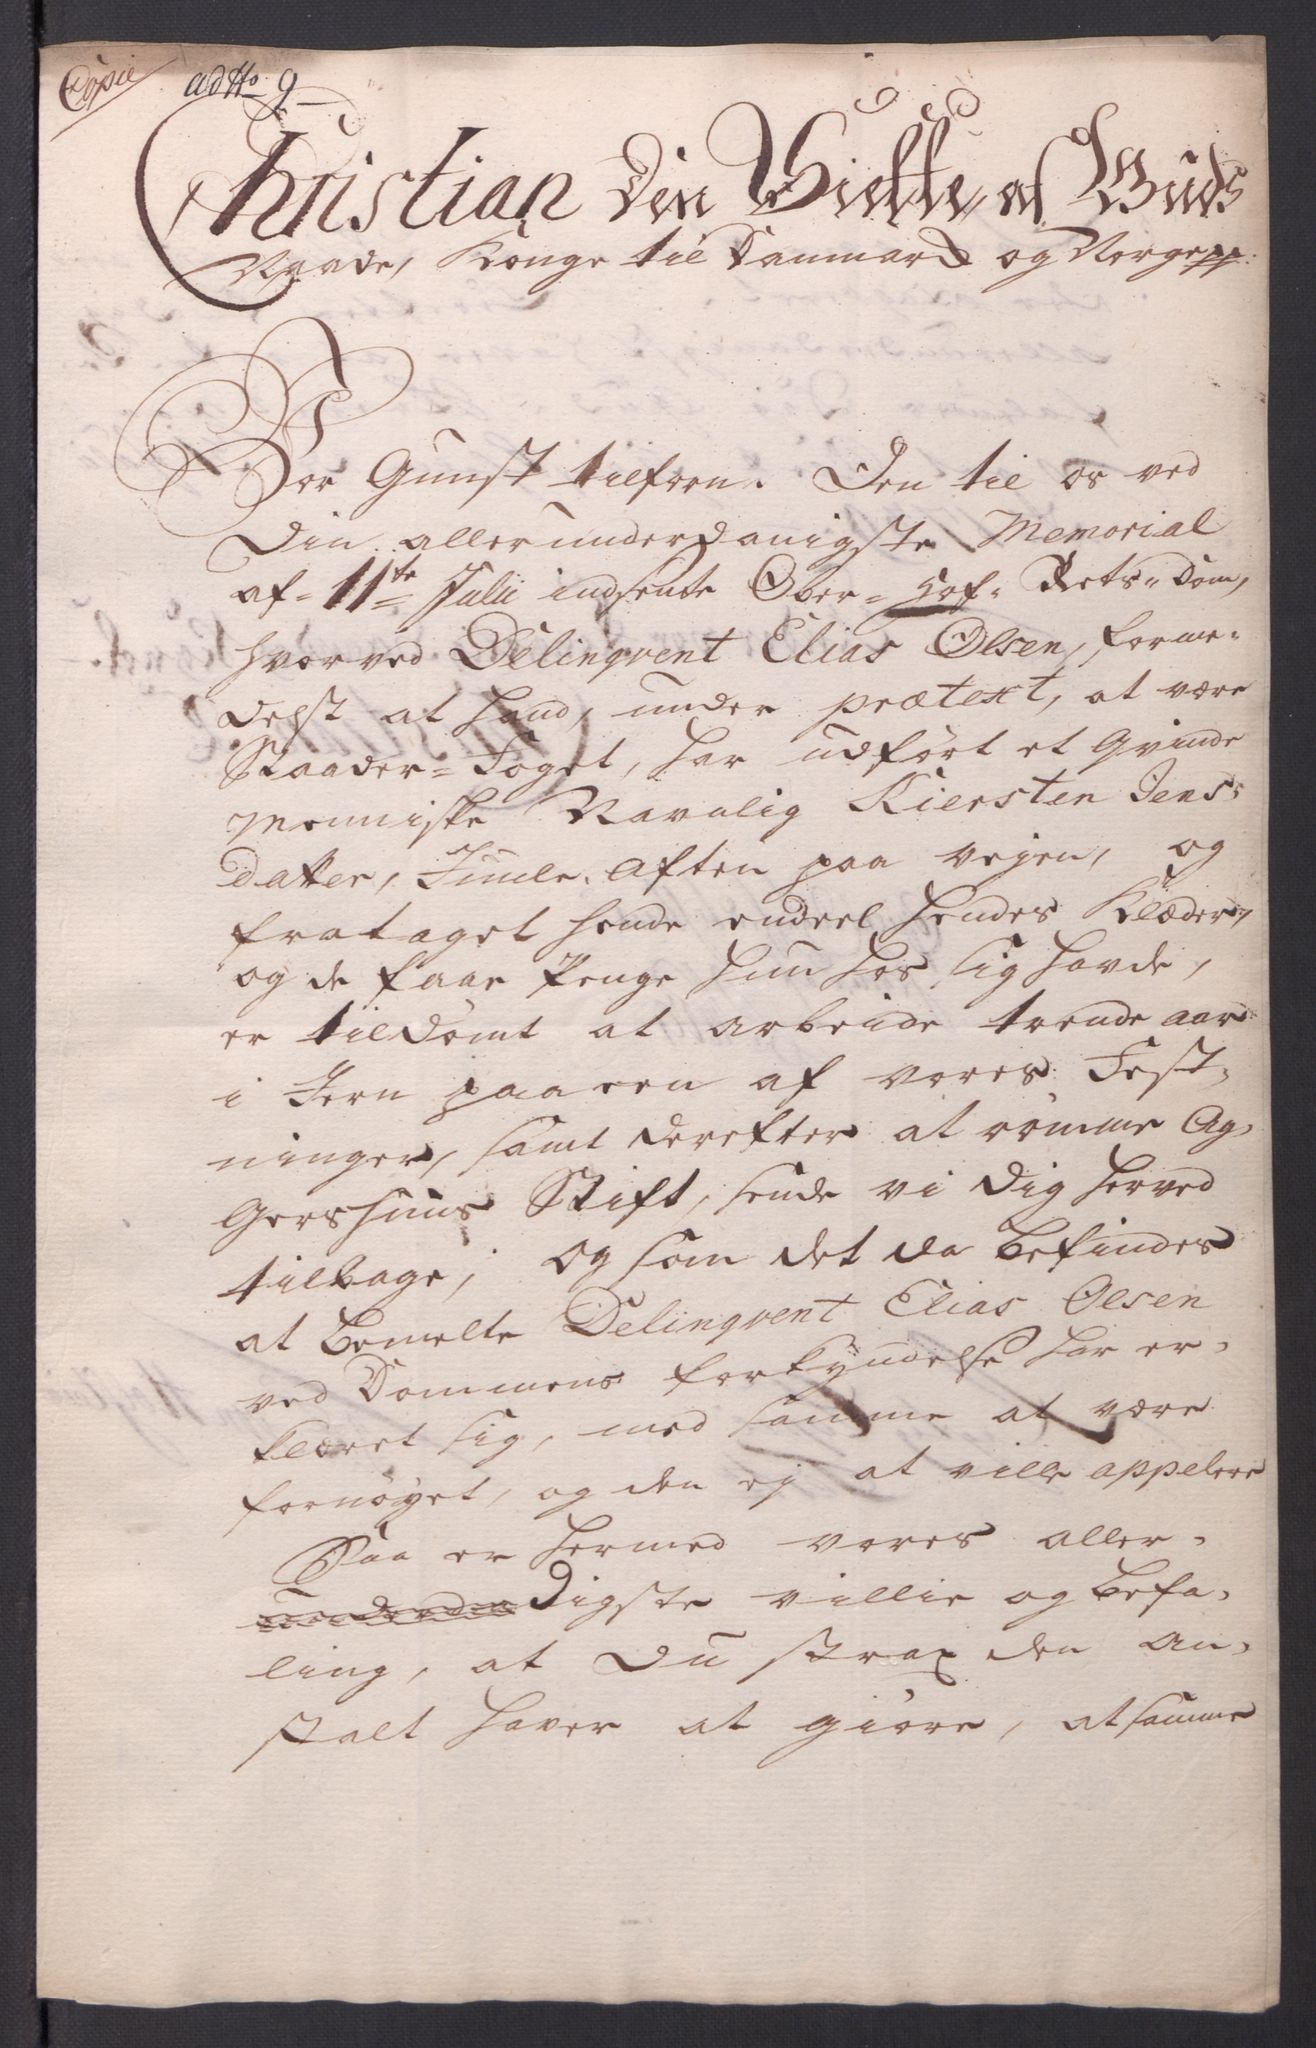 Copie
ad No 9
Christian den Siette, af Guds
Naade, Konge til Danmark og Norge pp:
Vor Gunst tilforn. Den til os ved
Din allerunderdanigste Memorial
af 11te Julii indsente Ober-Hof-Rets-Dom,
hvorved Delinqvent Elias Olsen, forme-
delst at hand, under prætext, at være
Staader-Foget, har udført et Qvinde
Menniske Navnlig Kiersten Jens-
datter, Juule Aften paa vejen, og
frataget hende endeel hendes Klæder,
og de faae Penge hun hos sig havde,
er tildømt at arbeide trende aar
i Jern paa een af vores Fest-
ninger, samt derefter at rømme Ag-
gershuus Stift, sende vi dig herved
tilbage; og som det da befindes
at bemelte Delinqvent Elias Olsen
ved Dommens forkyndelse har er-
kleret sig, med samme at være
fornøyet, og den ej at ville appelere
Saa er hermed vores aller-
digste villie og befa-
ling, at Du strax den an-
stalt haver at giøre, at samme